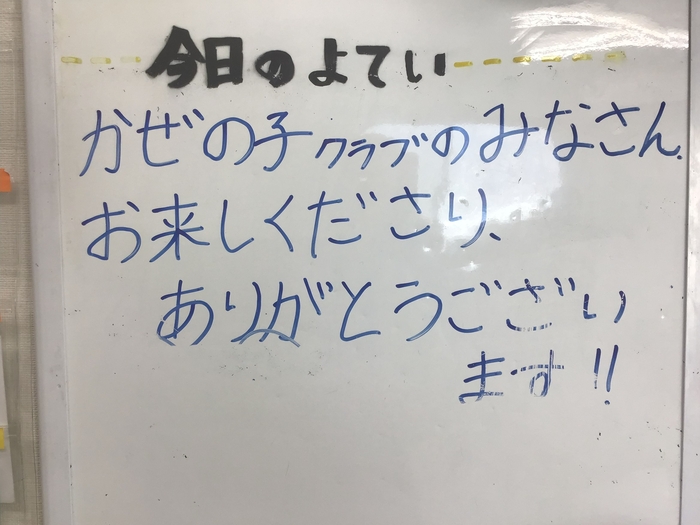 今日のよてい
かぜの子クラブのみなさん、
お来しくださり、
ありがとうござい
ます!!